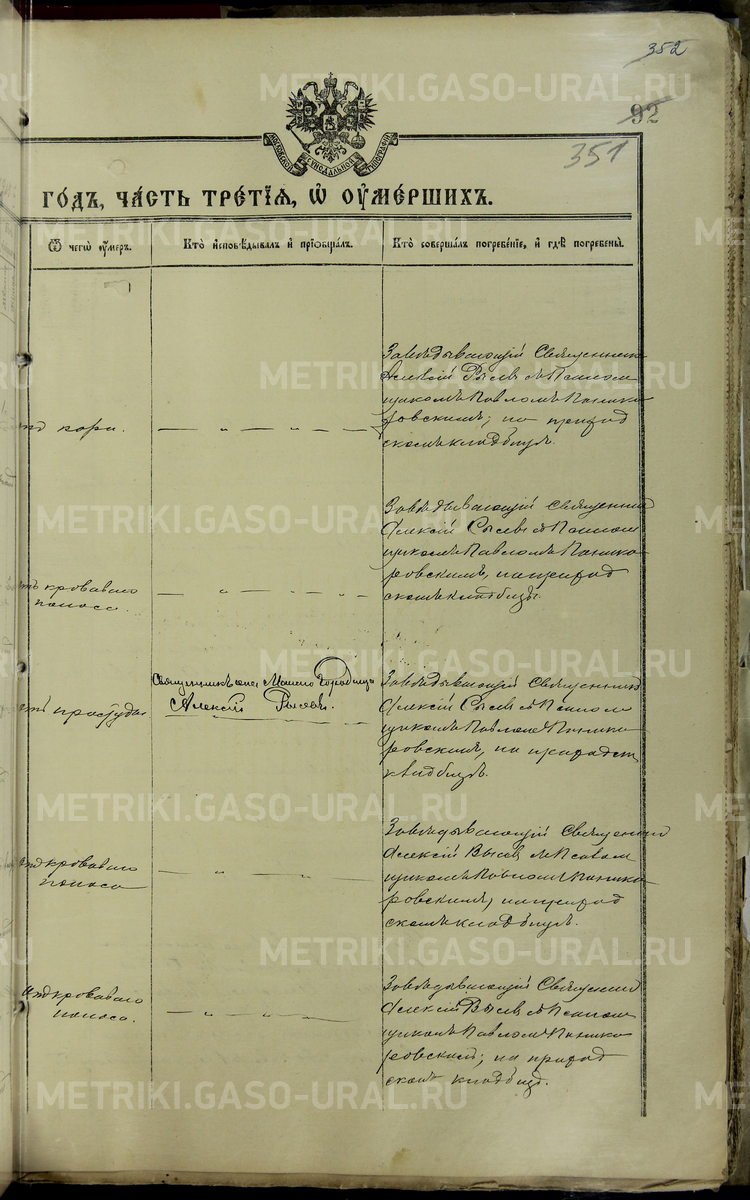 352
92
351
МОСКОВСКОЙ СѴНОДАЛЬНОЙ ТИПОГРАФІИ
ГОДЪ, ЧАСТЬ ТРЕТІЯ, Ѡ ОУМЕРШИХЪ.
Ѿ чегѡ оумеръ.
Кто исповѣдывалъ и пріобщалъ.
Кто совершалъ погребеніе, и гдѣ погребены.
кори.
Завѣдывающій Священник
Алексій съ Псалом
щикомъ Павломъ Поника
ровскимъ; на приход
скомъ кладбищѣ.
отъ кроваваго
поноса.
Завѣдывающій Священник
Алексій съ Псалом
щикомъ Павломъ Поника
ровскимъ, на приход
скомъ кладбищѣ.
отъ простуды
Священникъ
Алексій
Завѣдывающій Священник
Алексій съ Псалом
щикомъ Павломъ Поника
ровскимъ, на приходск
кладбищѣ.
кроваваго
поноса
Завѣдывающій Священник
Алексій съ Псалом
щикомъ Павломъ Поника
ровскимъ, на приход
скомъ кладбищѣ.
кроваваго
поноса.
Завѣдывающій Священник
Алексій съ Псалом
щикомъ Павломъ Поника
ровскимъ; на приход
ском кладбищѣ.
METRIKI.GASO-URAL.RU